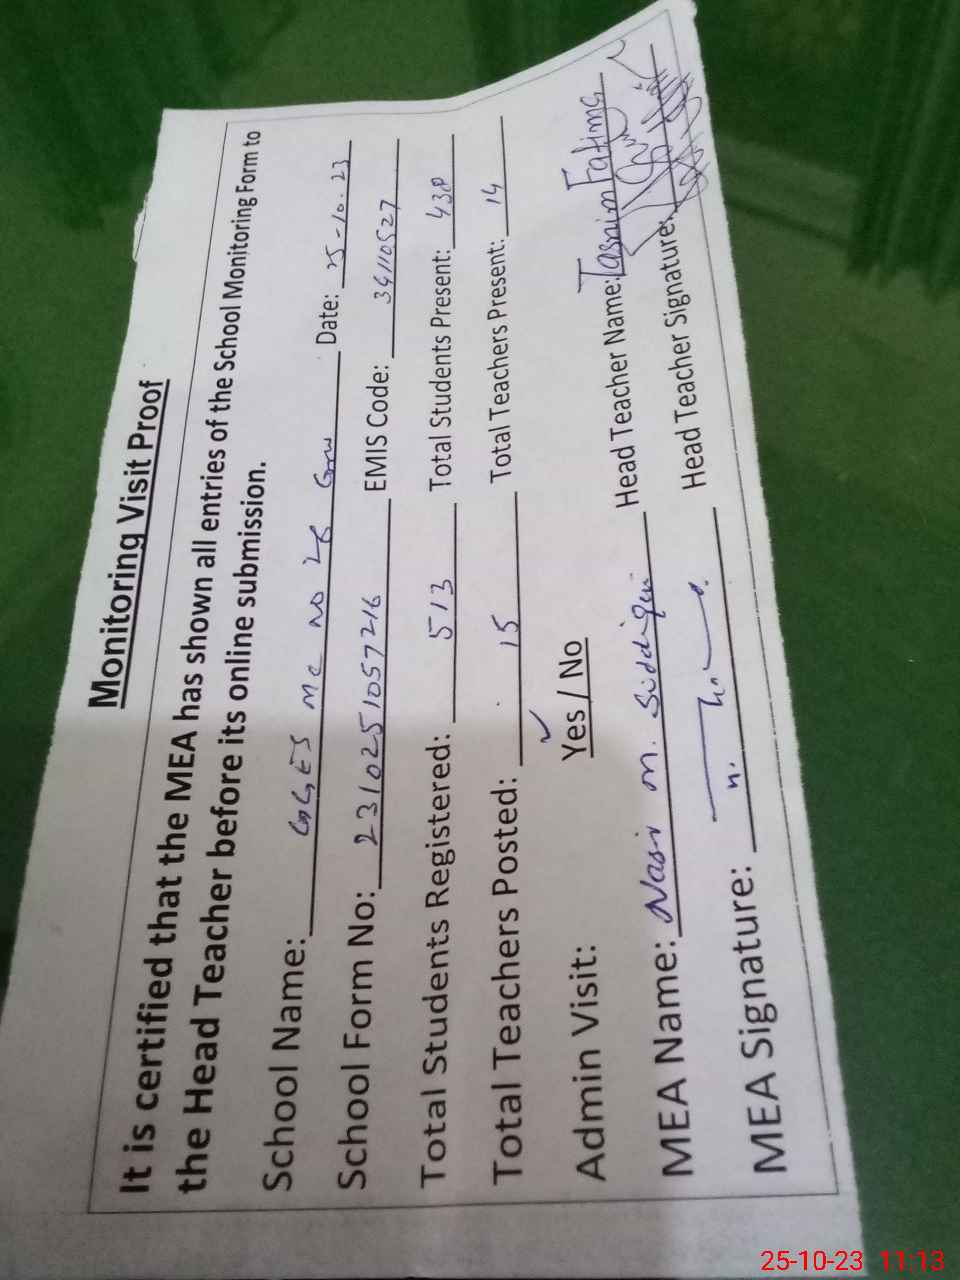 Monitoring Visit Proof
It is certified that the MEA has shown all entries of the School Monitoring Form to
the Head Teacher before its online submission.
School Name: GGES MC NO 26 GRW Date: 25-10.23
School Form No: 2310251057216 EMIS Code: 34110527
Total Students Registered: 513 Total Students Present: 438
Total Teachers Posted: 15 Total Teachers Present: 14
Admin Visit: Yes / No
MEA Name: Nasir M. Siddiqui Head Teacher Name: Tasnim Fatima
MEA Signature: Head Teacher Signature:
25-10-23 11:13